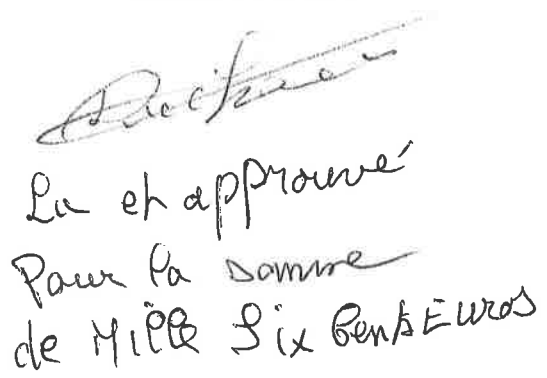 Lu et approuvé
Pour la somme
de Mille Six Cents Euros